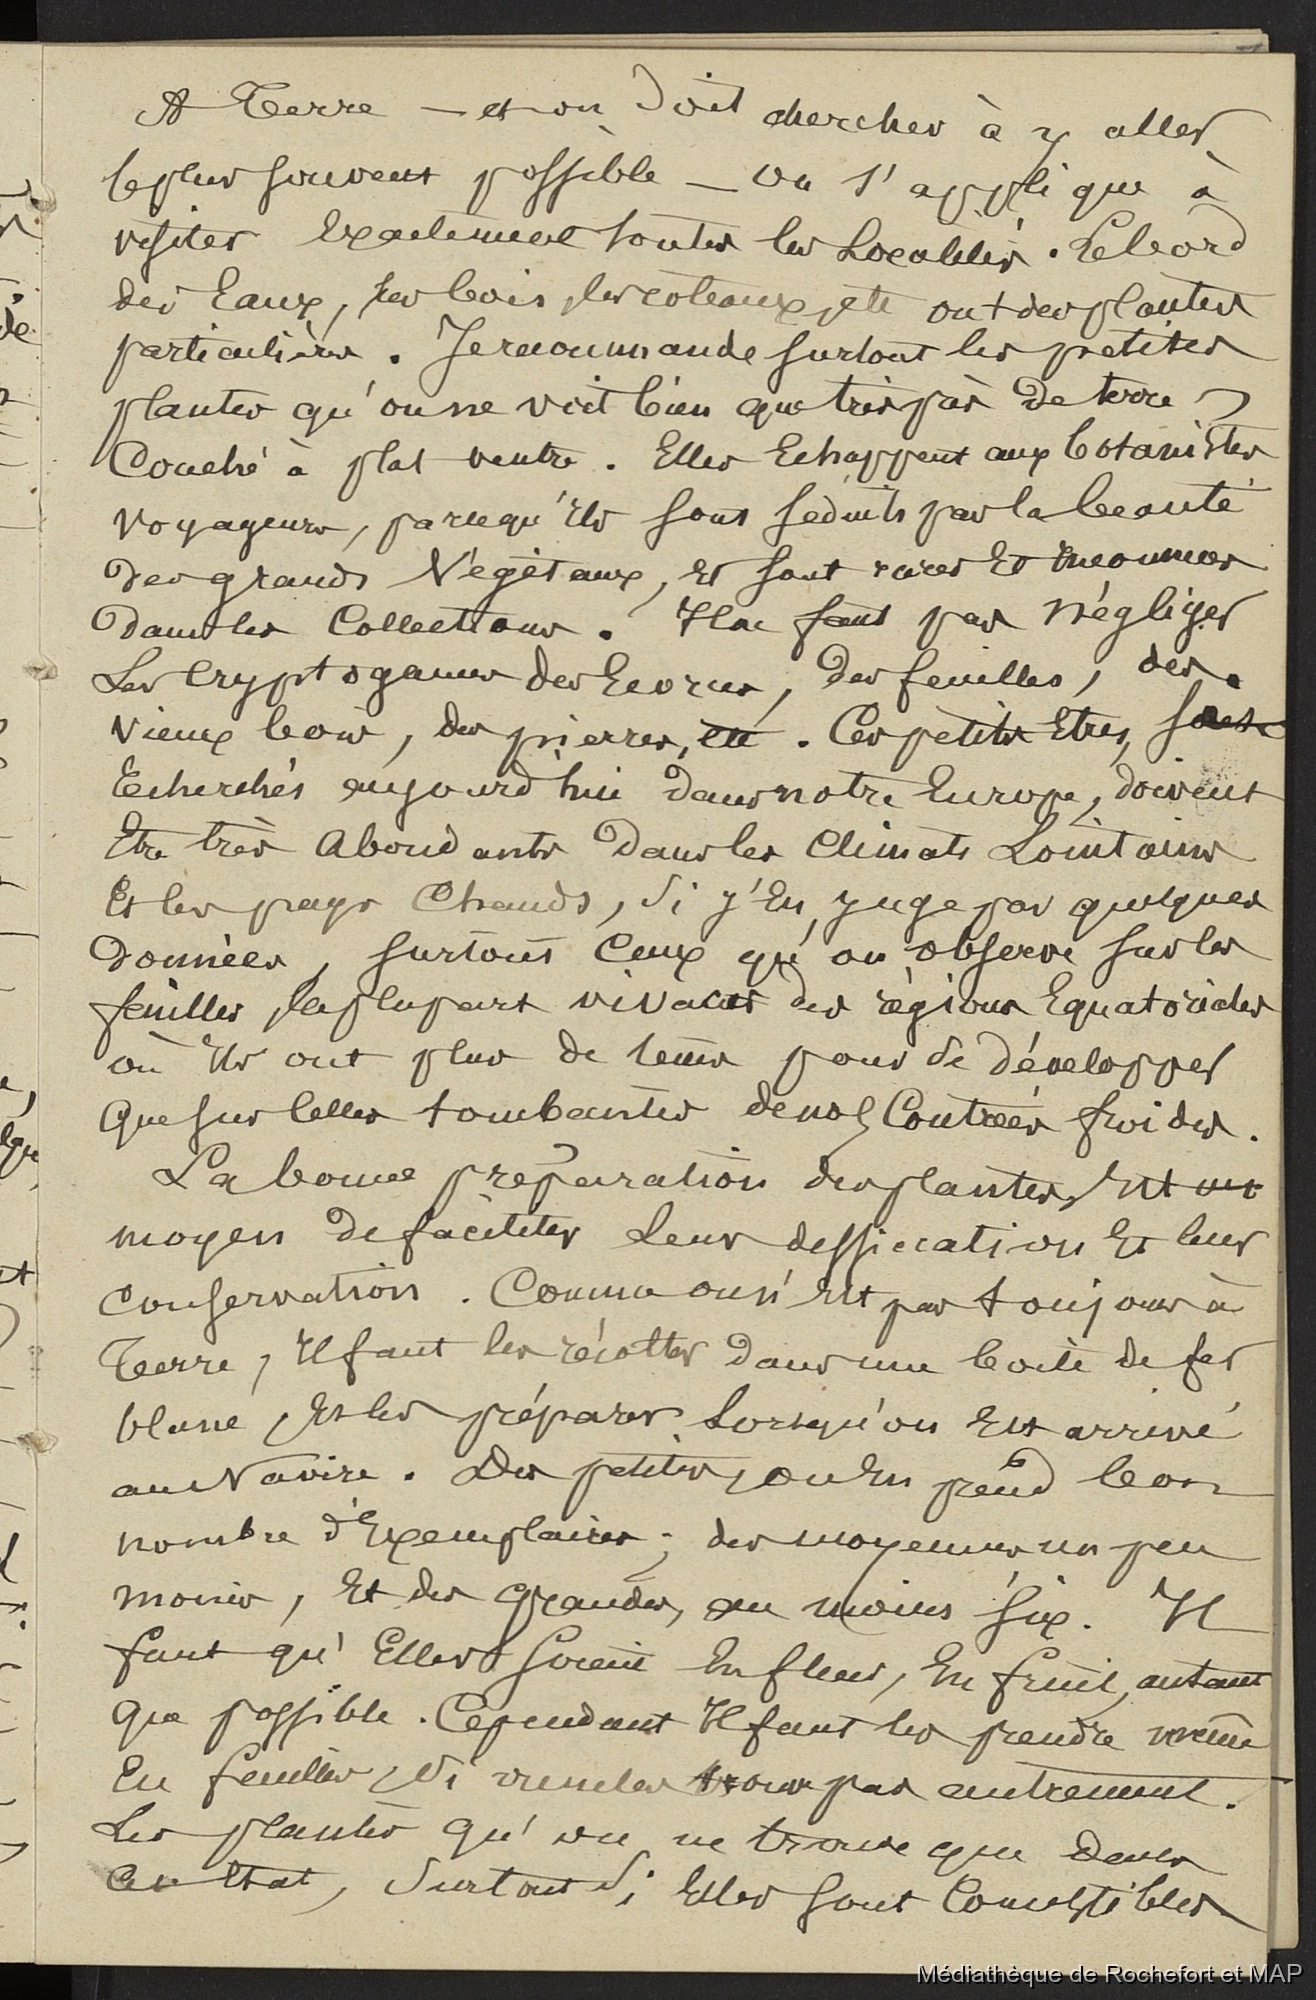 A Terre — et on doit chercher à y aller
le plus souvent possible — on s'applique à
visiter Exactement toutes les Localités. Le bord
des Eaux, les bois, les coteaux, etc ont des plantes
particulières. Je recommande surtout les petites
plantes qu'on ne voit bien que très près de terre,
Couché à plat ventre. Elles Echappent aux botanistes
voyageurs, parcequ'ils sont séduits par la beauté
des grands Végétaux, et sont rares Et inconnues
dans les Collections. Il ne faut pas négliger
Les Cryptogames des Ecorces, des feuilles, des
vieux bois, des pierres, etc. Ces petits Etres, si
recherchés aujourd'hui dans notre Europe, doivent
Etre très abondants dans les Climats Lointains
Et les pays Chauds, si j'En juge par quelques
données, surtout Ceux qu'on observe sur les
feuilles, la plupart vivaces des régions Equatoriales
où Ils ont plus de tems pour se développer
que sur Celles tombantes de nos Contrées froides.
La bonne préparation des plantes Est un
moyen de faciliter Leur dessiccation Et leur
conservation. Comme on n'Est pas toujours à
Terre, Il faut les récolter dans une boite de fer
blanc, Et les préparer Lorsqu'on Est arrivé
au Navire. Des petites, on En prend bon
nombre d'Exemplaires; des moyennes un peu
moins, Et des grandes, au moins six. Il
faut qu'Elles soient En fleur, En fruit, autant
que possible. Cependant Il faut les prendre même
En feuilles, si on ne les trouve pas autrement.
Les plantes qu'on ne trouve que dans
Cet Etat, surtout si Elles sont Comestibles
Médiathèque de Rochefort et MAP